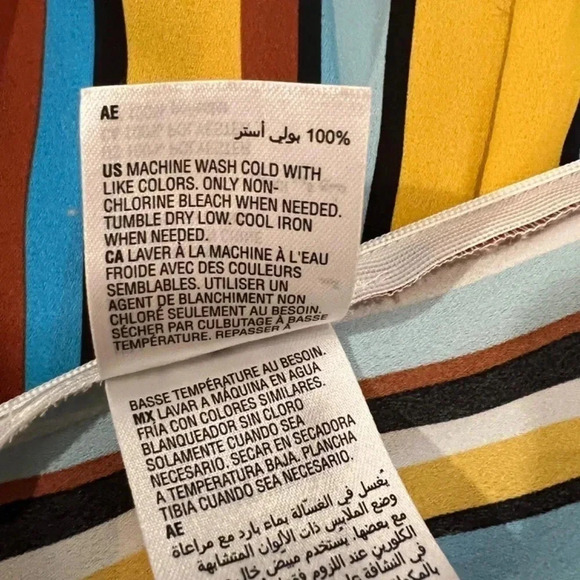 AE
100% بولي أستر
US MACHINE WASH COLD WITH
LIKE COLORS. ONLY NON-
CHLORINE BLEACH WHEN NEEDED.
TUMBLE DRY LOW. COOL IRON
WHEN NEEDED.
CA LAVER À LA MACHINE À L'EAU
FROIDE AVEC DES COULEURS
SEMBLABLES. UTILISER UN
AGENT DE BLANCHIMENT NON
CHLORÉ SEULEMENT AU BESOIN.
SÉCHER PAR CULBUTAGE À BASSE
TEMPÉRATURE. REPASSER À
BASSE TEMPÉRATURE AU BESOIN.
MX LAVAR A MÁQUINA EN AGUA
FRÍA CON COLORES SIMILARES.
BLANQUEADOR SIN CLORO
SOLAMENTE CUANDO SEA
NECESARIO. SECAR EN SECADORA
A TEMPERATURA BAJA. PLANCHA
TIBIA CUANDO SEA NECESARIO.
AE
يُغسل في الغسّالة بماء بارد مع مراعاة
وضع الملابس ذات الألوان المتشابهة
مع بعضها. يستخدم مبيض خال
الكلورين عند اللزوم فقط
في النشافة على